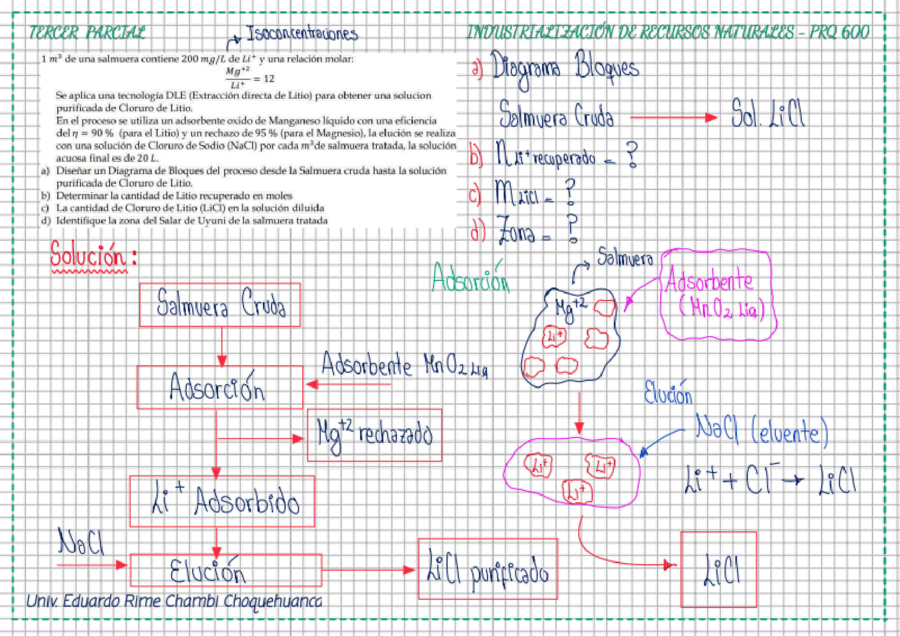 TERCER PARCIAL
INDUSTRIALIZACIÓN DE RECURSOS NATURALES - PRQ 600
Isoconcentraciones
1 m³ de una salmuera contiene 200 mg/L de Li⁺ y una relación molar:
Mg⁺²/Li⁺ = 12
Se aplica una tecnología DLE (Extracción directa de Litio) para obtener una solucion
purificada de Cloruro de Litio.
En el proceso se utiliza un adsorbente oxido de Manganeso líquido con una eficiencia
del η = 90 % (para el Litio) y un rechazo de 95 % (para el Magnesio), la elución se realiza
con una solución de Cloruro de Sodio (NaCl) por cada m³de salmuera tratada, la solución
acuosa final es de 20 L.
a) Diseñar un Diagrama de Bloques del proceso desde la Salmuera cruda hasta la solución
purificada de Cloruro de Litio.
b) Determinar la cantidad de Litio recuperado en moles
c) La cantidad de Cloruro de Litio (LiCl) en la solución diluida
d) Identifique la zona del Salar de Uyuni de la salmuera tratada
a) Diagrama Bloques
Salmuera Cruda → Sol. LiCl
b) n Li⁺ recuperado = ?
c) m LiCl = ?
d) Zona = ?
Solución:
Salmuera Cruda
Adsorción
Adsorbente MnO₂ Liq
Mg⁺² rechazado
Li⁺ Adsorbido
NaCl
Elución
LiCl purificado
Adsorción
Salmuera
Mg⁺²
Li⁺
Adsorbente
(MnO₂ Liq)
Elución
NaCl (eluente)
Li⁺ Li⁺
Li⁺
Li⁺ + Cl⁻ → LiCl
LiCl
Univ. Eduardo Rime Chambi Choquehuanca